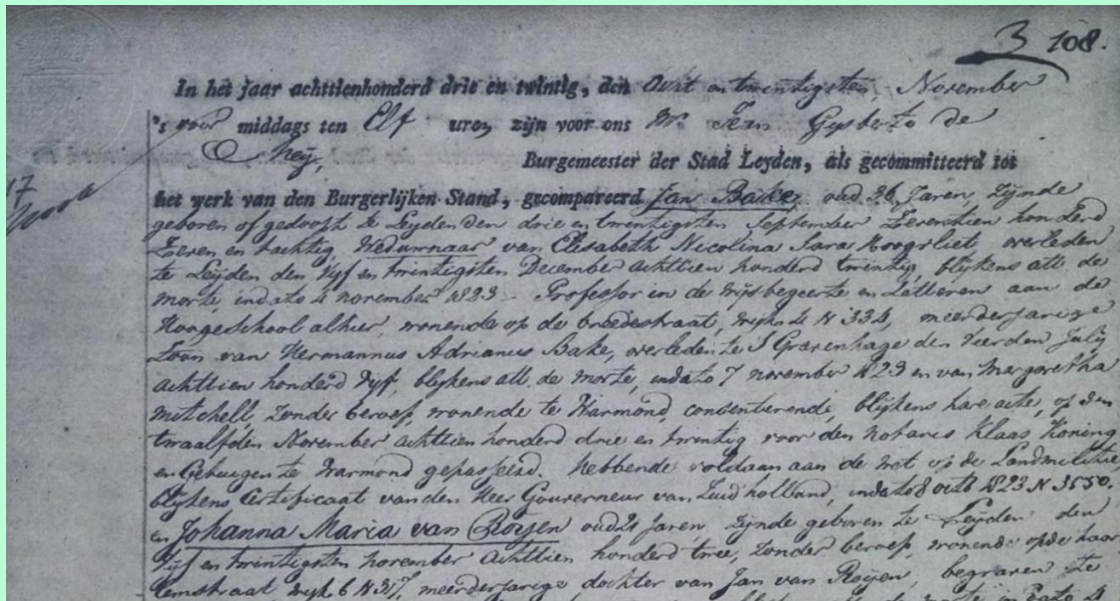 3 108.
In het jaar achttienhonderd drie en twintig, den Acht en twintigsten November
's voor middags ten Elf uren zijn voor ons Mr. Jean Gysberto de
Mey, Burgemeester der Stad Leyden, als gecommitteerd tot
17
het werk van den Burgerlijken Stand, gecompareerd Jan Bake, oud 36 Jaren, Zijnde
geboren of gedoopt te Leyden den drie en twintigsten September Zeventien honderd
Zeven en tachtig, Weduwnaar van Elisabeth Nicolina Sara Hoogvliet overleden
te Leijden den Vijf en twintigsten December achttien honderd twintig, blijkens all de
morte, indato 4 november 1823 - Professor in de wijsbegeerte en Letteren aan de
Hoogeschool alhier, wonende op de breedestraat, wijk 4 N 334, meerderjarige
Zoon van Hermannus Adrianus Bake, overleden te S Gravenhage den Vierden July
achttien honderd Vijf, blijkens all. de morte, indato 7 november 1823 en van Margaretha
Mitchell, Zonder beroep, wonende te Warmond, consenterende, blijkens hare acte, op den
twaalfden November achttien honderd drie en twintig voor den Notaris Klaas Koning
en Getuigen te Warmond gepasseerd. hebbende voldaan aan de wet op de Landmilitie
blijkens Certificaat van den Heer Gouverneur van Zuidholland, indato 8 octb 1823 N 3550.
en Johanna Maria van Roijen oud 21 Jaren, Zijnde geboren te Leyden den
Vijf en twintigsten november achttien honderd twee, Zonder beroep, wonende op de haar
lemstraat wijk 6 N 317, meerderjarige dochter van Jan van Roijen, begraven te